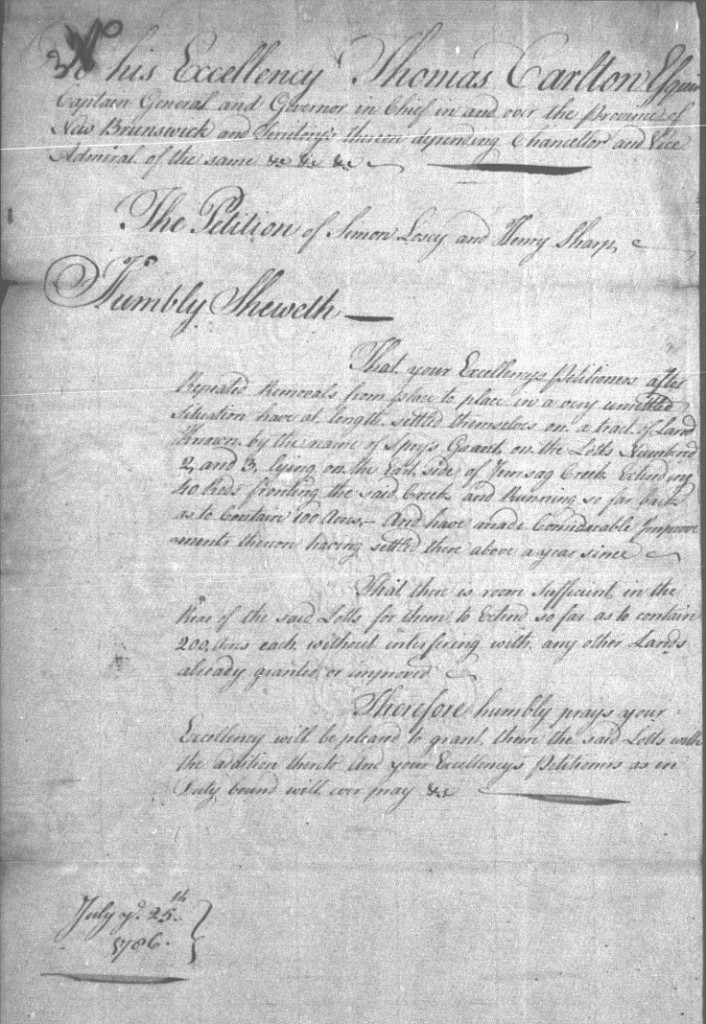 To his Excellency Thomas Carlton Esquir
Captain General and Governor in Chief in and over the Province of
New Brunswick and Territory's thereon depending Chancellor and Vice
Admiral of the same &c &c &c
The Petition of Simon Losey and Henry Sharp,
Humbly Sheweth
That your Excellency's Petitioners after
Repeated Removals from place to place in a very unsettled
Situation have at length settled themselves on a tract of Land
Known by the name of Spry's Grant, on the Lotts Numbered
2, and 3, lying on the East side of Jemsag Creek Extending
40 Rods fronting the said Creek and Running so far back
as to Contain 100 Acres,- And have made Considerable Improve
ments thereon having settled there above a year since
That there is room sufficient in the
Rear of the said Lotts for them to Extend so far as to contain
200 Acres each without interfering with any other Lands
already granted or improved
Therefore humbly prays your
Excellency will be pleased to grant them the said Lotts with
the addition thereto And your Excellency's Petitioners as in
Duty bound will ever pray &c
July ye. 25th
1786.